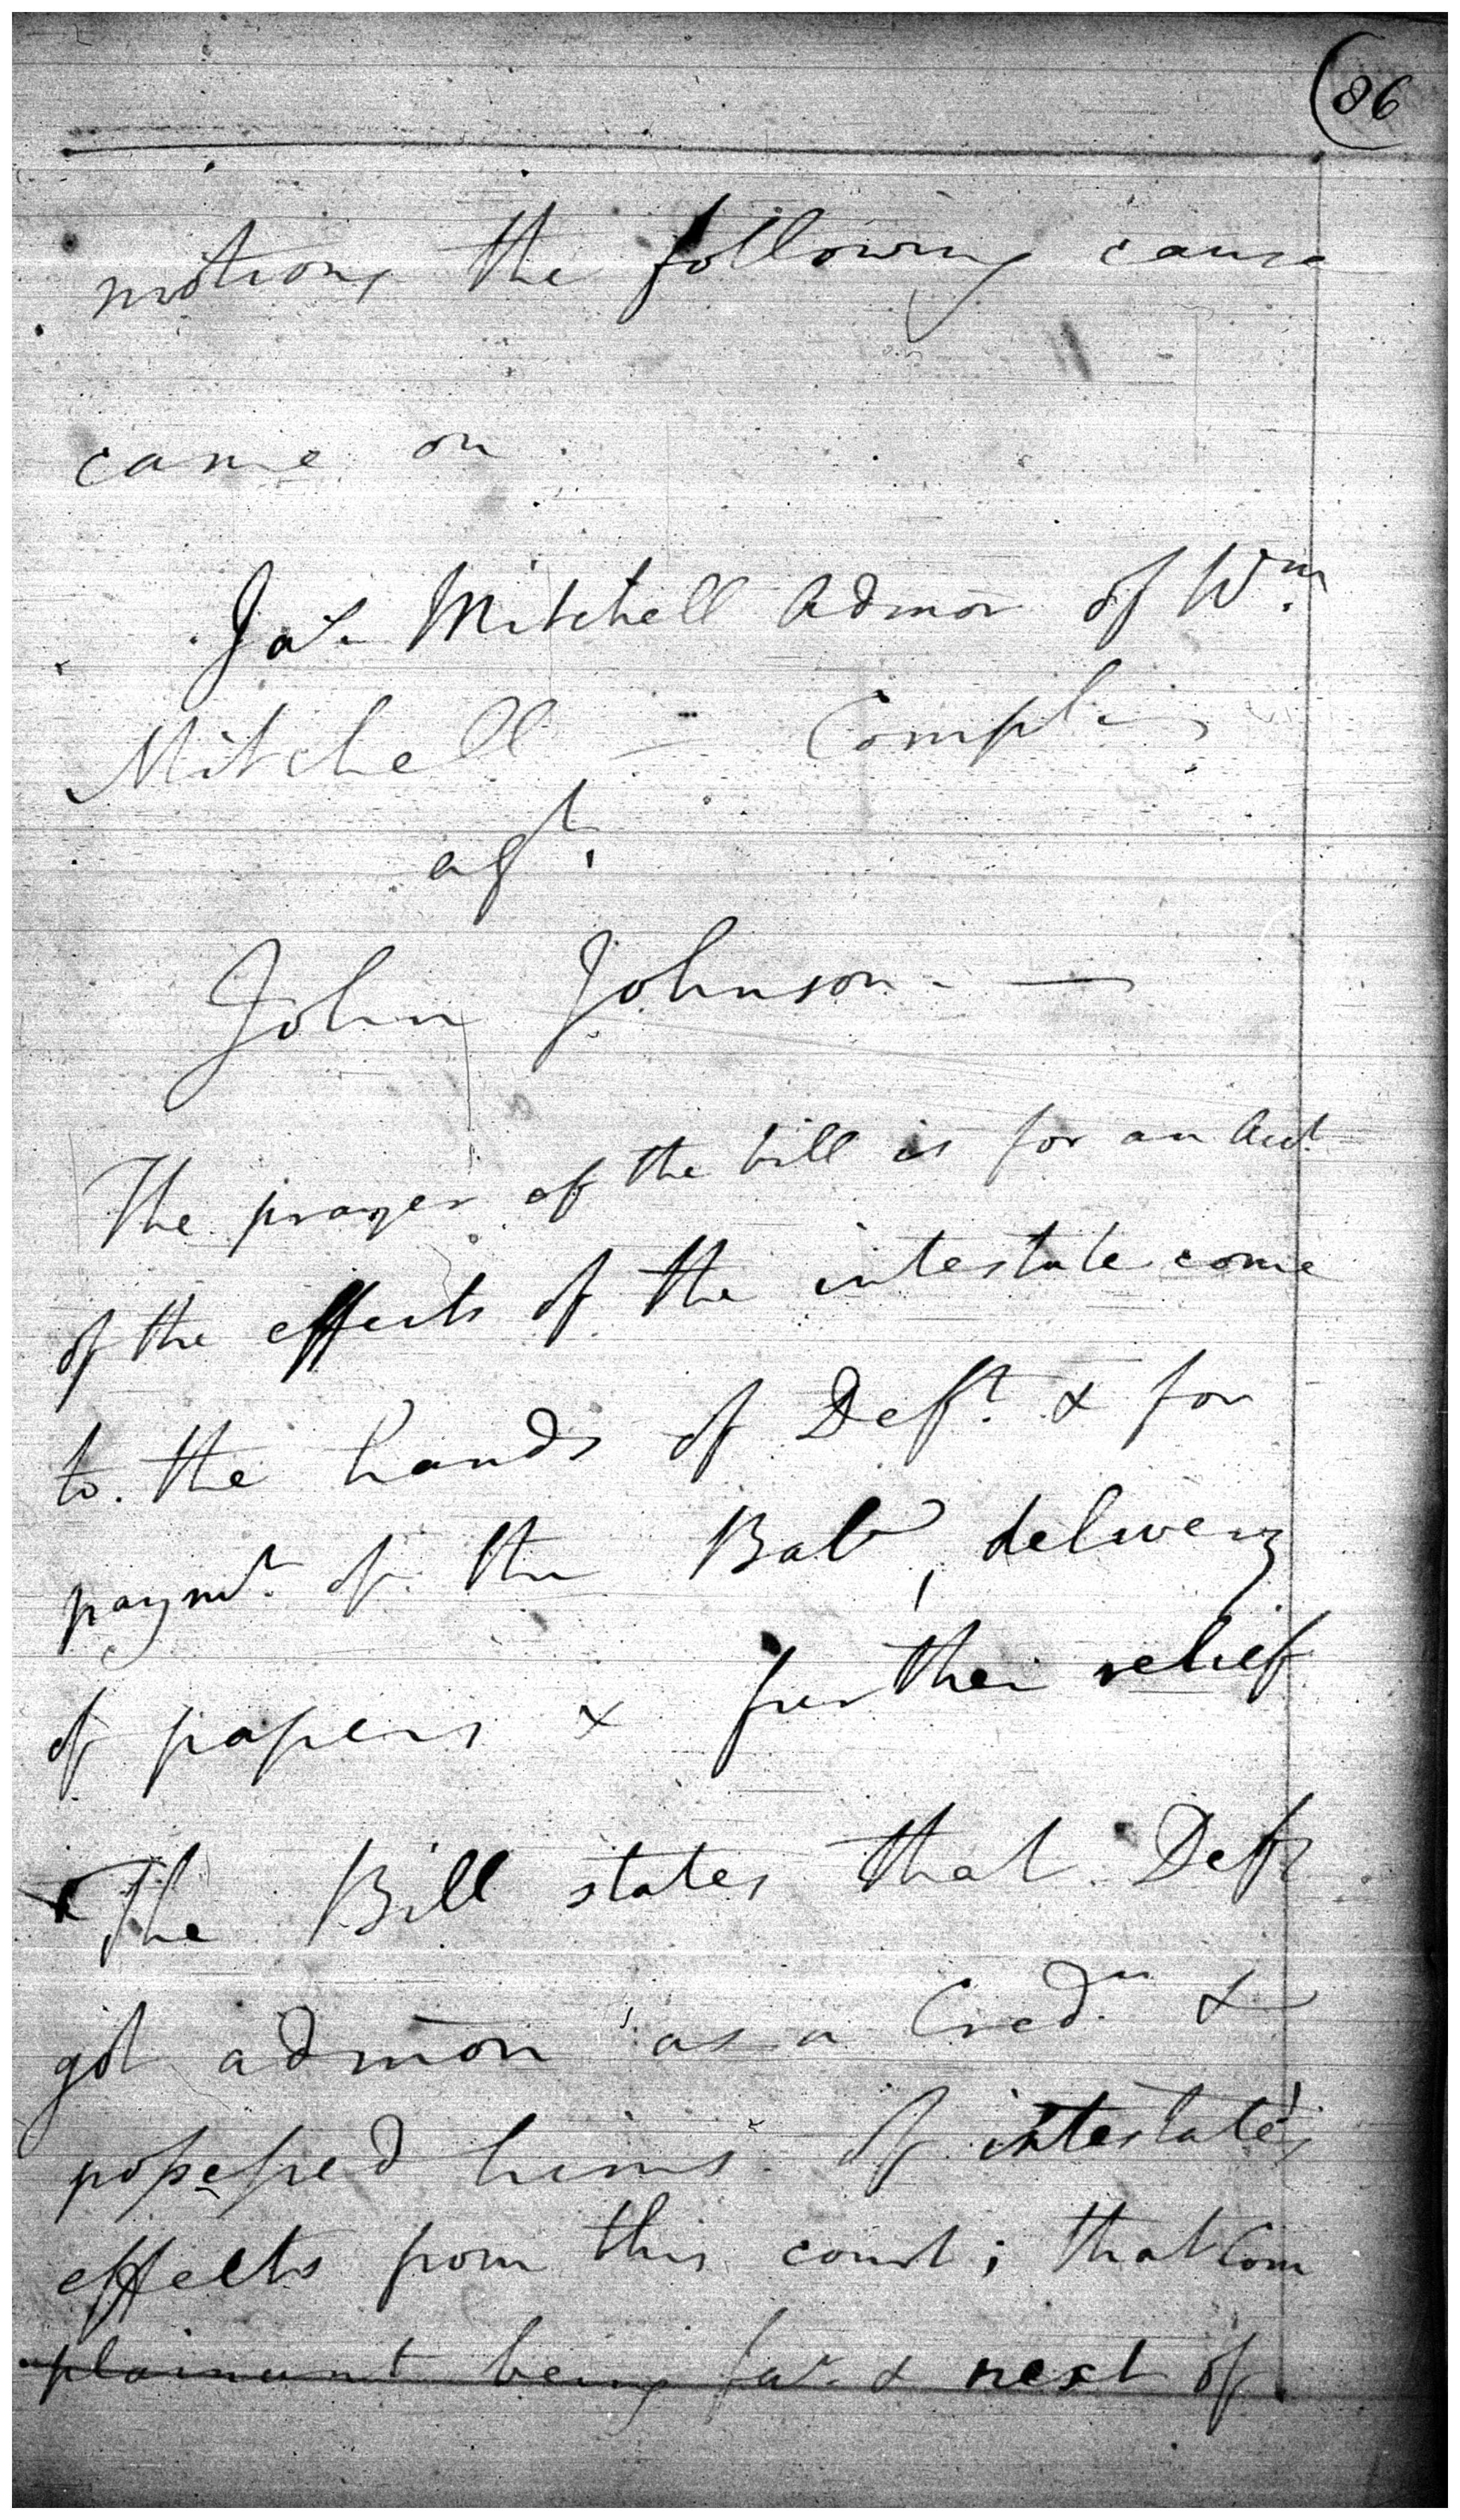 86
motions the following cause
came on.
Jas. Mitchell Admor of Wm.
Mitchell - Complt
agt.
John Johnson - —
The prayer of the bill is for an Acct.
of the effects of the intestate come
to the hands of Deft. & for
paymt. of the Bale, delivery
of papers & further relief
The Bill states that Deft
got admon as a Credr. &
possessed hims. of intestate's
effects from this court; that Com
plainant being far. & next of